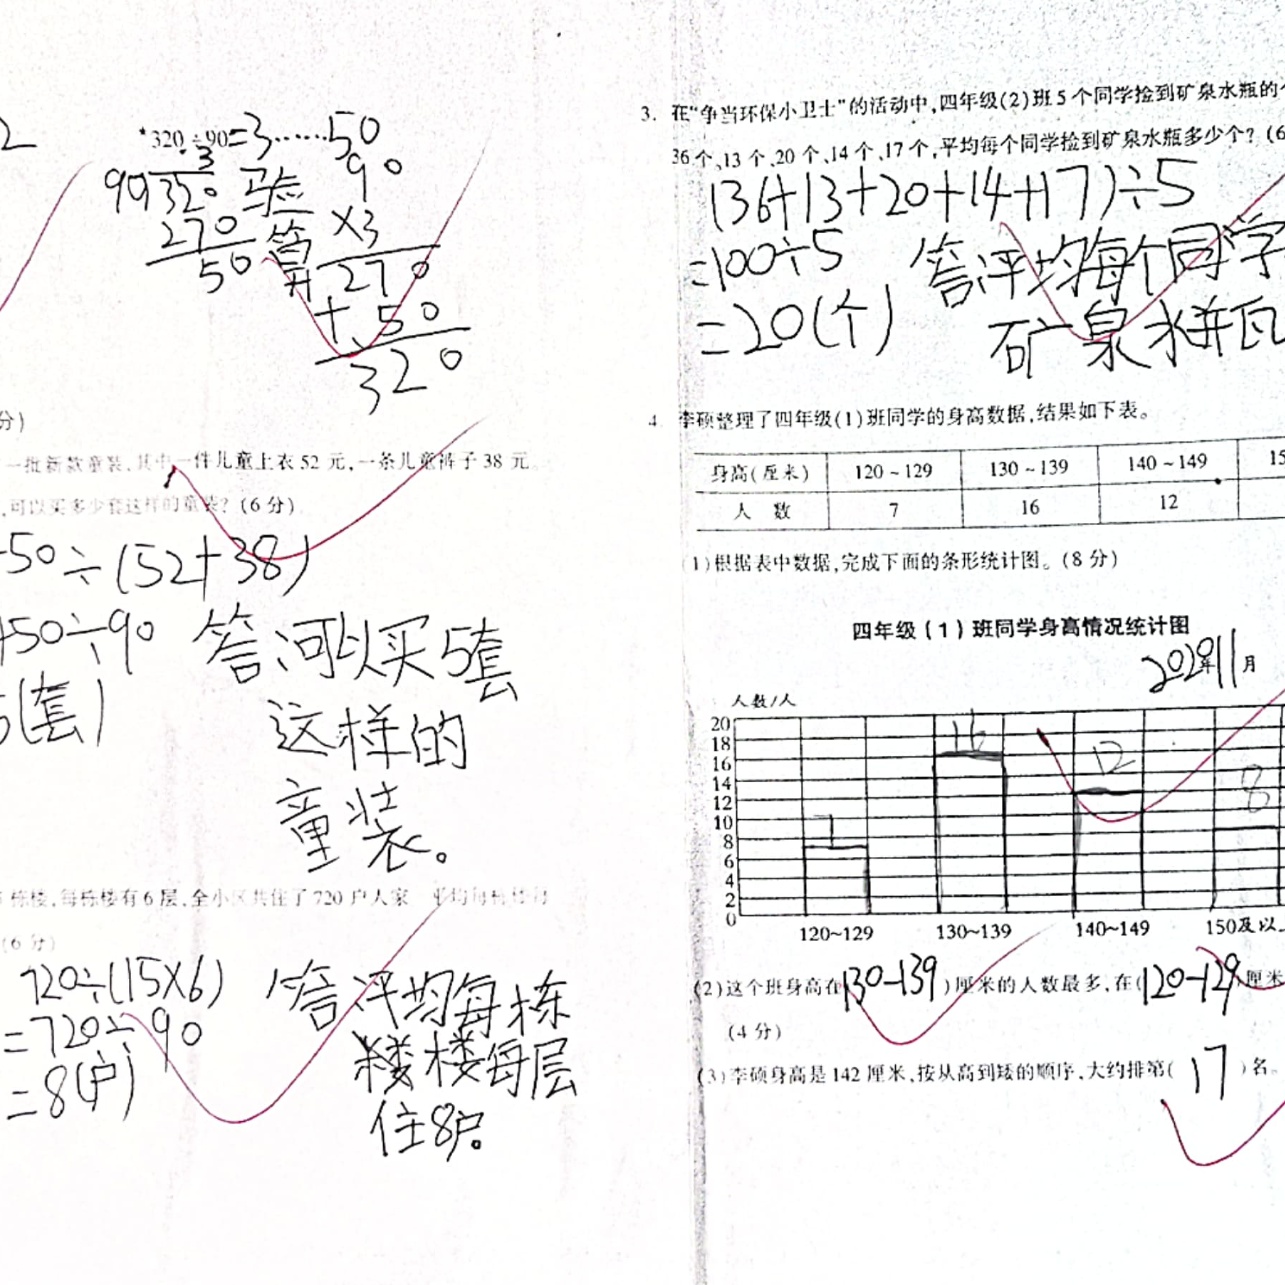 2
*320÷90=3……50
3
90 320
270
50
验算
90
×3
270
+50
320
分)
一批新款童装,其中一件儿童上衣52元,一条儿童裤子38元
,可以买多少套这样的童装?(6分)
50÷(52+38)
450÷90
5(套)
答:可以买5套
这样的
童装。
栋楼,每栋楼有6层,全小区共住了720户人家
(6分)
720÷(15×6)
=720÷90
=8(户)
答:评均每栋
楼每层
住8户。
3. 在“争当环保小卫士”的活动中,四年级(2)班5个同学捡到矿泉水瓶的
36个、13个、20个、14个、17个,平均每个同学捡到矿泉水瓶多少个?(6
(36+13+20+14+17)÷5
=100÷5
=20(个)
答:评均每个同学
矿泉水瓶
4. 李硕整理了四年级(1)班同学的身高数据,结果如下表。
身高(厘米) 120~129 130~139 140~149 15
人数 7 16 12
(1)根据表中数据,完成下面的条形统计图。(8分)
四年级(1)班同学身高情况统计图
11月
人数/人
20
18
16
14
12
10
8
6
4
2
0
7
16
12
8
120~129 130~139 140~149 150及以
(2)这个班身高在(130-139)厘米的人数最多,在(120-129)厘米
(4分)
(3)李硕身高是142厘米,按从高到矮的顺序,大约排第(17)名。